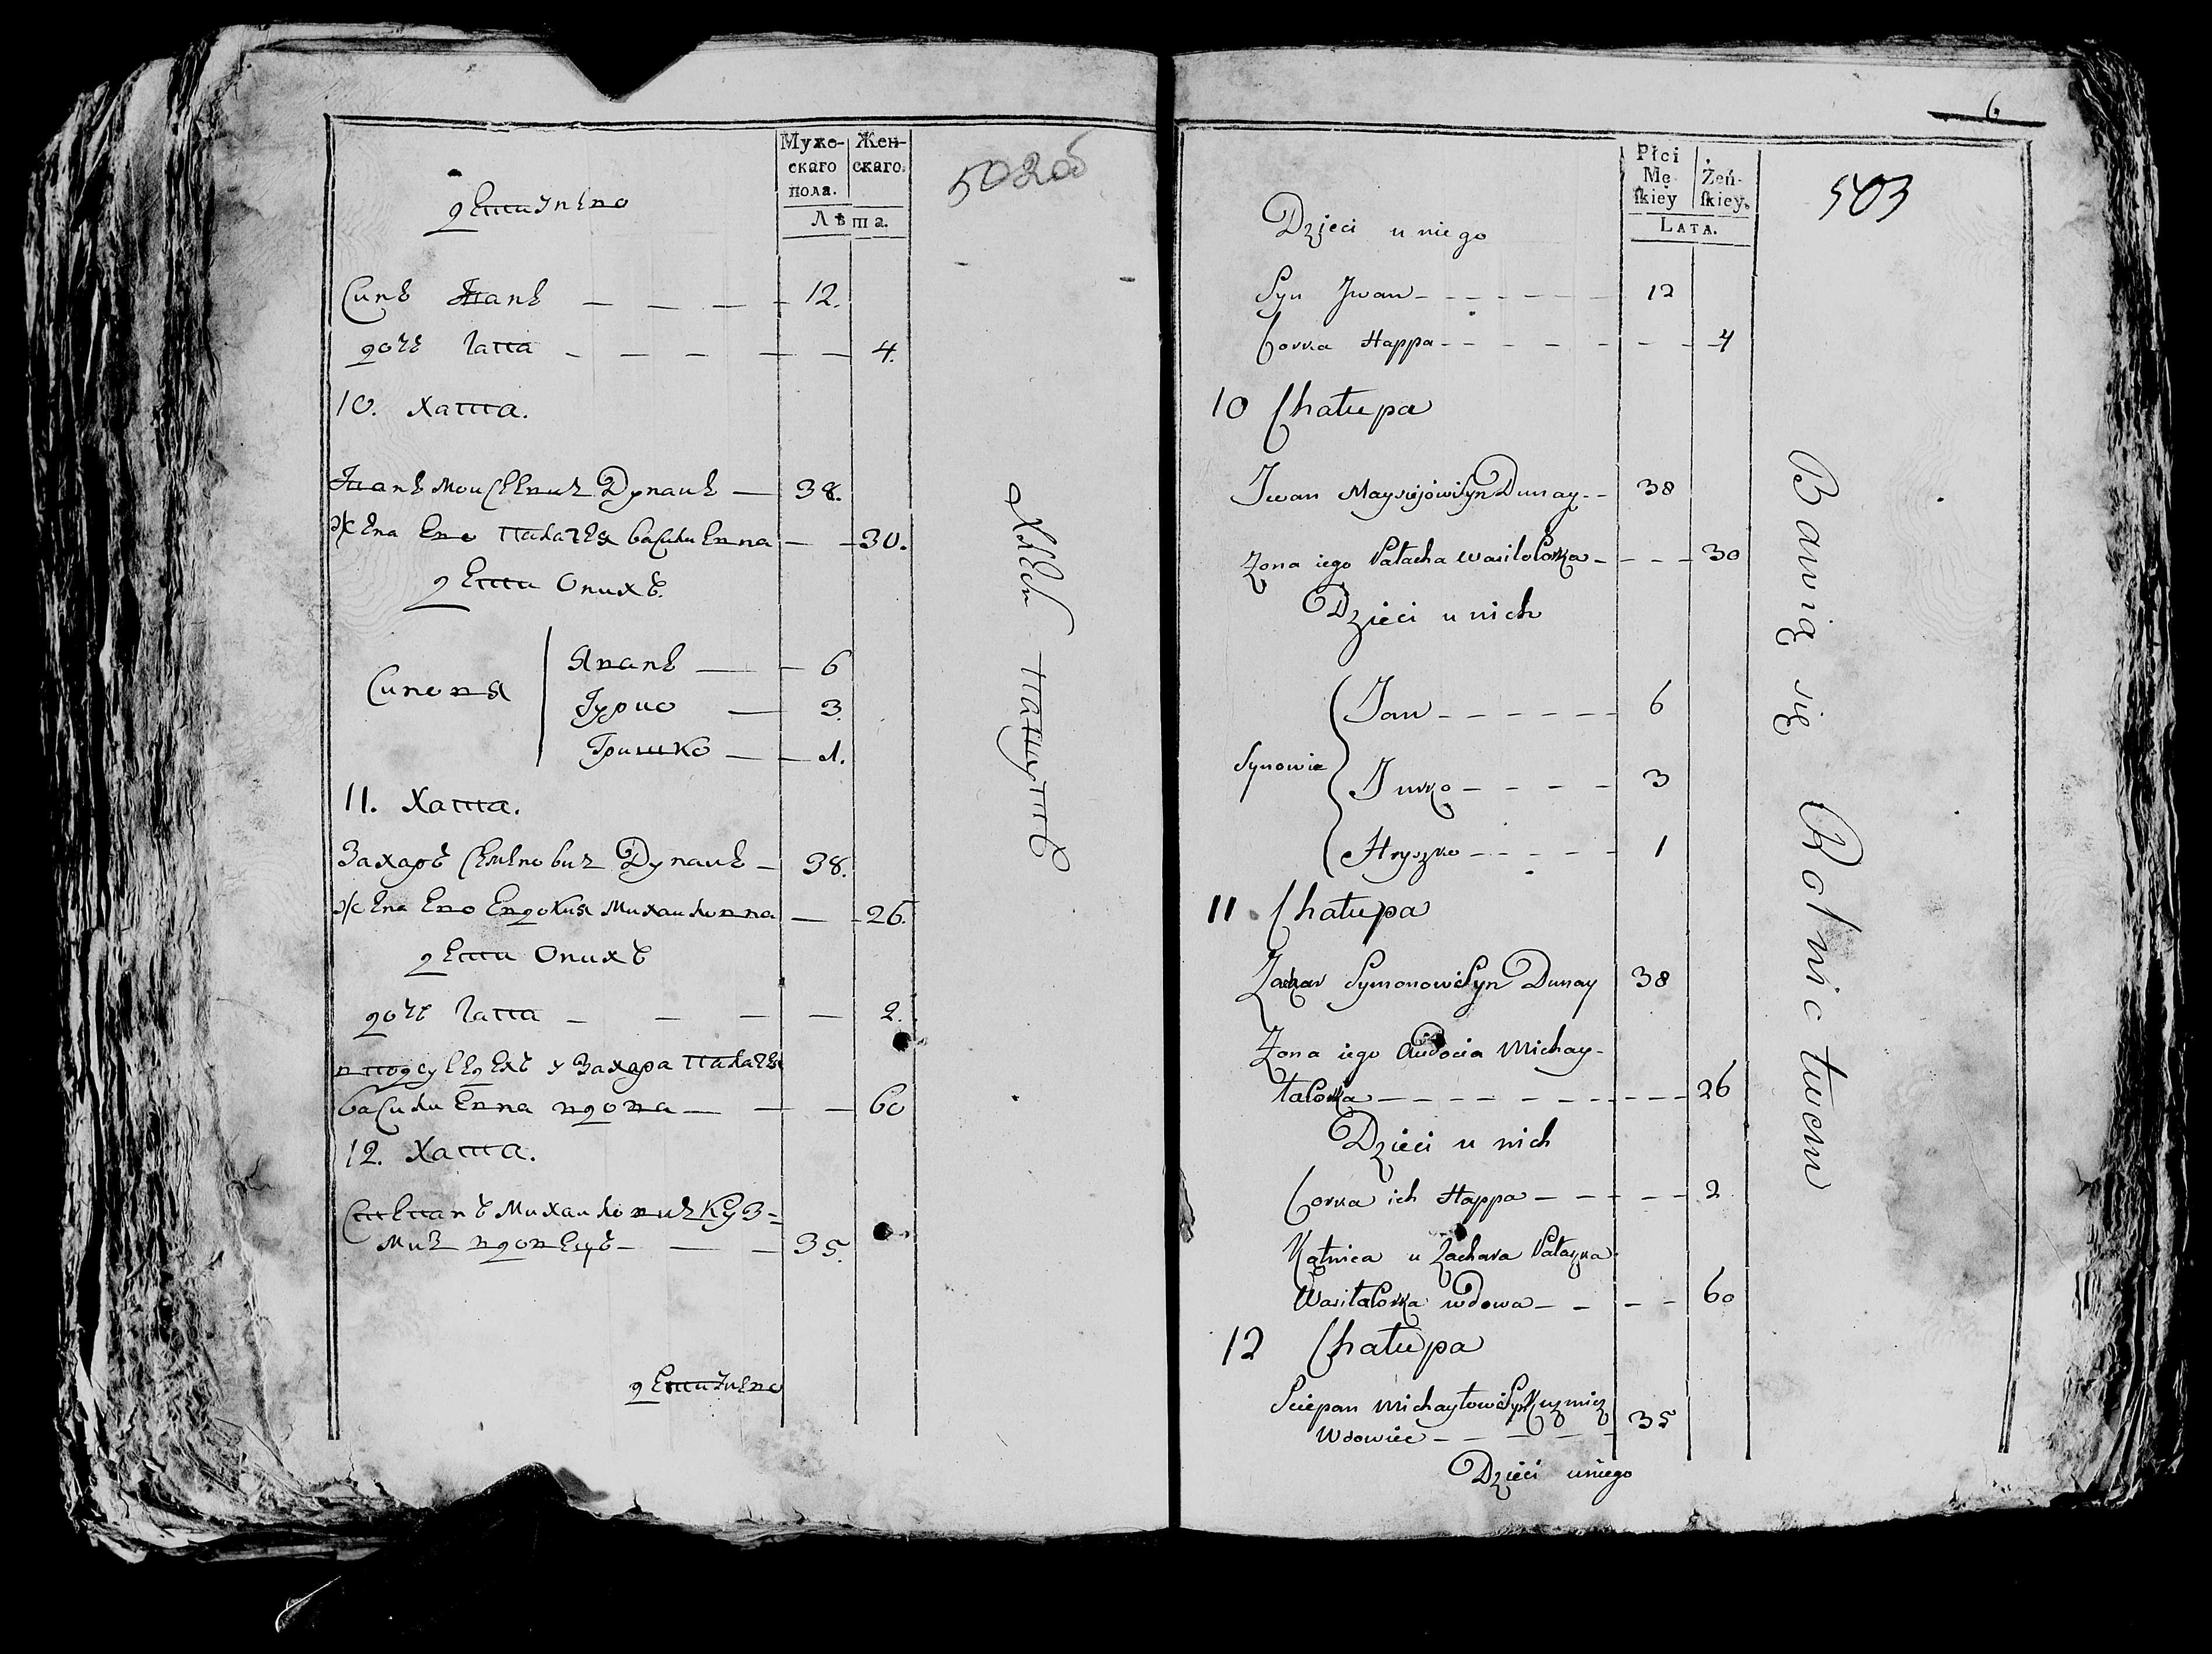 Муже-
скаго
пола.
Жен-
скаго.
Лѣта.
502об
дети унего
Синъ Иванъ — — — — 12.
дочъ Гапа — — — — — 4.
10. Хата.
Иванъ Моисеевич Дунаиъ — 38.
жена его Палагея Василиевна — — 30.
дети Онихъ.
Синовя
Яванъ — — 6
Гурко — 3.
Гришко — — 1.
11. Хата.
Захаръ Семенович Дунаиъ — 38.
жена его Евдокия Михаиловна — — 26.
дети Онихъ
дочъ Гапа — — — — 2.
в подсуседехъ у Захара Палагея
Василиевна вдова — — — 60
12. Хата.
Степанъ Михаилович Куз=
мич вдовецъ — — — 35.
дети унего
6
Płci
Mę-
skiey
Żeń-
skiey.
LATA.
503
Dzieci u niego
Syn Jwan — — — — — 12
Corka Happa — — — — — — 4
10 Chałupa
Jwan Maysiejów Syn Dunay — — 38
Zona iego Pałacha Wasilo Corka — — — — 30
Dzieci u nich
Synowie
Jan — — — — — — 6
Jurko — — — — 3
Hryszko — — — — — 1
11 Chałupa
Zachar Symonow Syn Dunay 38
Zona iego Audocia Michay-
ła Corka — — — — — — — — — 26
Dzieci u nich
Corka ich Happa — — — — — 2
Kątnica u Zachara
Wasila Corka wdowa — — — — 60
12 Chałupa
Sciepan Michayłow Syn Kuzmicz
Wdowiec — — — — — — 35
Dzieci u niego
Bawią się Rolnictwem